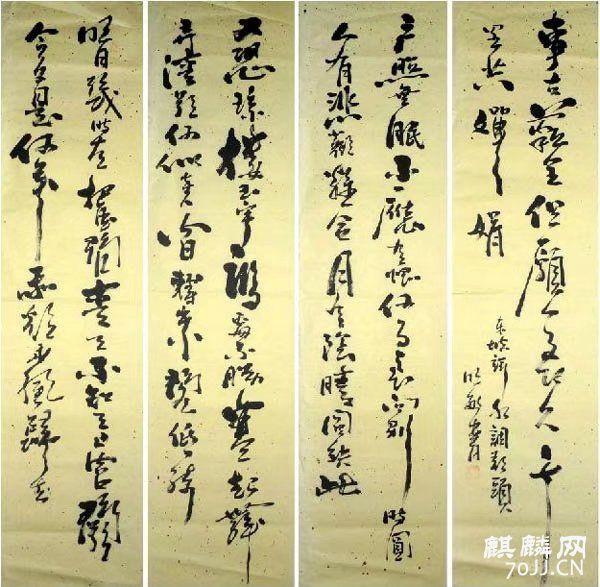 明月幾時有把酒問青天不知天上宮闕
今夕是何年我欲乘風歸去
又恐瓊樓玉宇高處不勝寒起舞
弄清影何似在人間轉朱閣低綺
戶照無眠不應有恨何事長向別時圓
人有悲歡離合月有陰晴圓缺此
事古難全但願人長久千
里共嬋娟
东坡詞水調歌頭
麒麟网
70JJ.CN